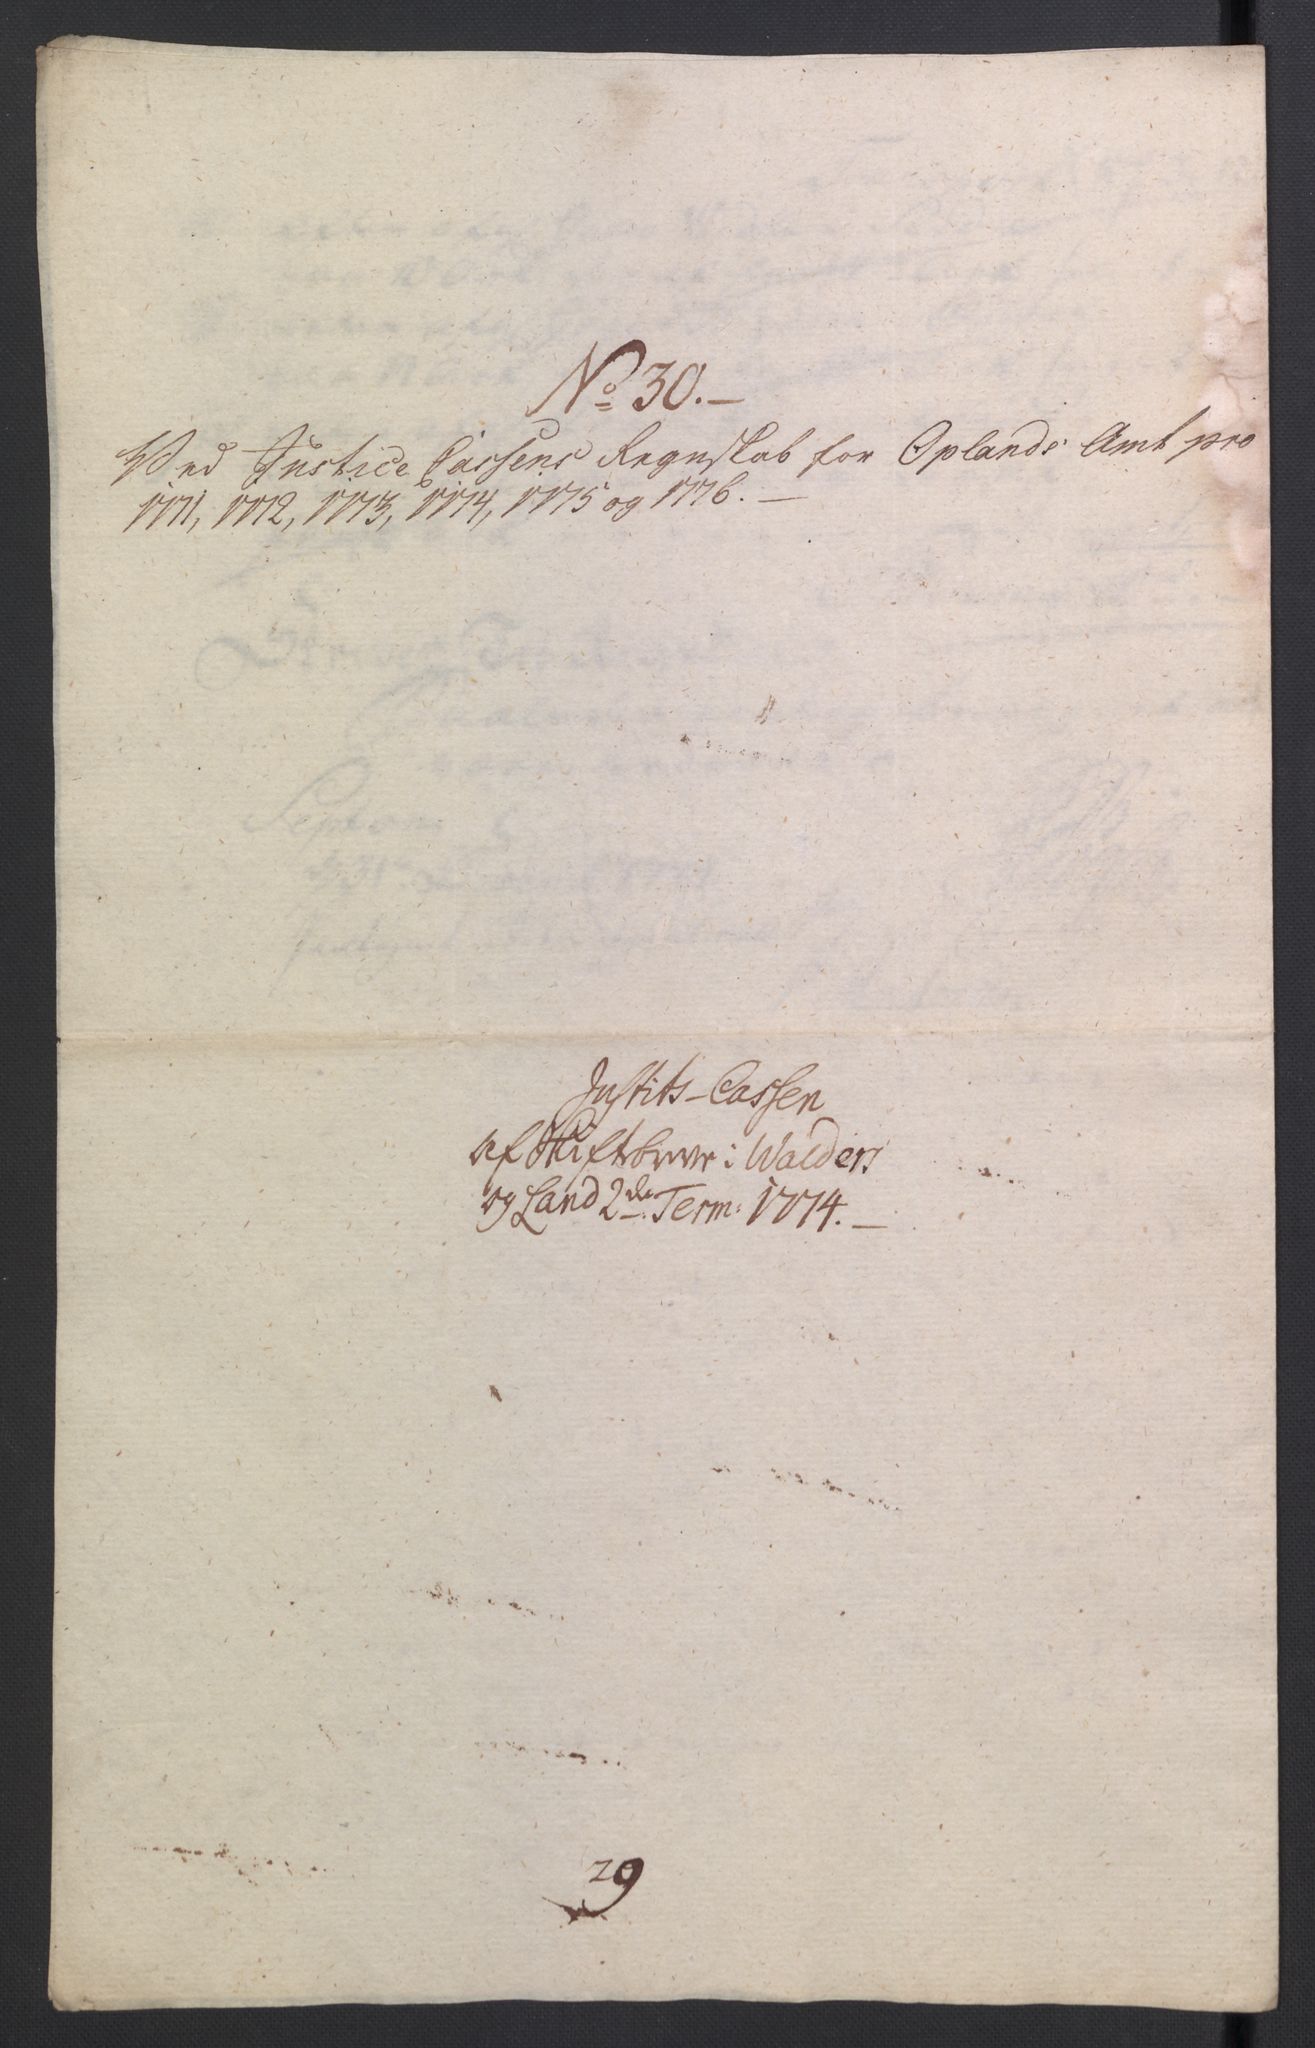 No 30.–
Ved Justice Cassens Regnskab for Oplands Amt pro
1771, 1772, 1773, 1774, 1775 og 1776. –
Justits-Cassen
af Skiftebreve i Walders
og Land 2de Term: 1774. –
29